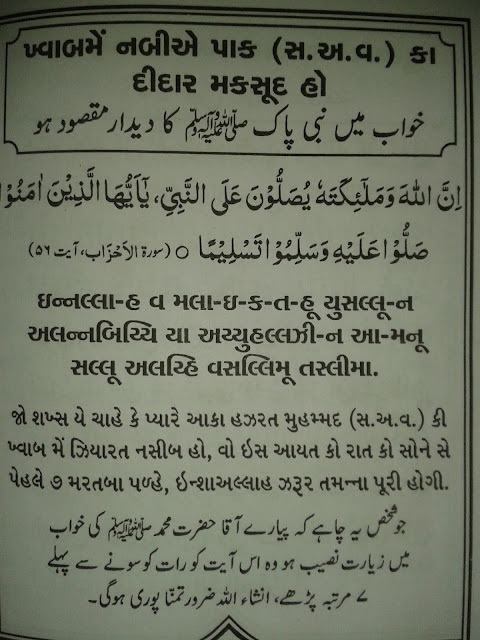 ખ્વાબમેં નબીએ પાક (સ.અ.વ.) કા
દીદાર મકસૂદ હો
خواب میں نبی پاک ﷺ کا دیدار مقصود ہو
اِنَّ اللهَ وَمَلٰٓئِكَتَهٗ يُصَلُّوْنَ عَلَى النَّبِيِّ، يٰٓاَيُّهَا الَّذِيْنَ اٰمَنُوْا
صَلُّوْا عَلَيْهِ وَسَلِّمُوْا تَسْلِيْمًا ○ (سورۃ الاَحْزَاب، آیت ۵۶)
ઇન્નલ્લા-હ વ મલા-ઇ-ક-ત-હૂ યુસલ્લૂ-ન
અલન્નબિય્યિ યા અય્યુહલ્લઝી-ન આ-મનૂ
સલ્લૂ અલય્હિ વસલ્લિમૂ તસ્લીમા.
જો શખ્સ યે ચાહે કે પ્યારે આકા હઝરત મુહમ્મદ (સ.અ.વ.) કી
ખ્વાબ મેં ઝિયારત નસીબ હો, વો ઇસ આયત કો રાત કો સોને સે
પેહલે ૭ મરતબા પળ્હે, ઇન્શાઅલ્લાહ ઝરૂર તમન્ના પૂરી હોગી.
جو شخص یہ چاہے کہ پیارے آقا حضرت محمد ﷺ کی خواب
میں زیارت نصیب ہو وہ اس آیت کو رات کو سونے سے پہلے
۷ مرتبہ پڑھے، انشاء اللہ ضرور تمنّا پوری ہوگی۔